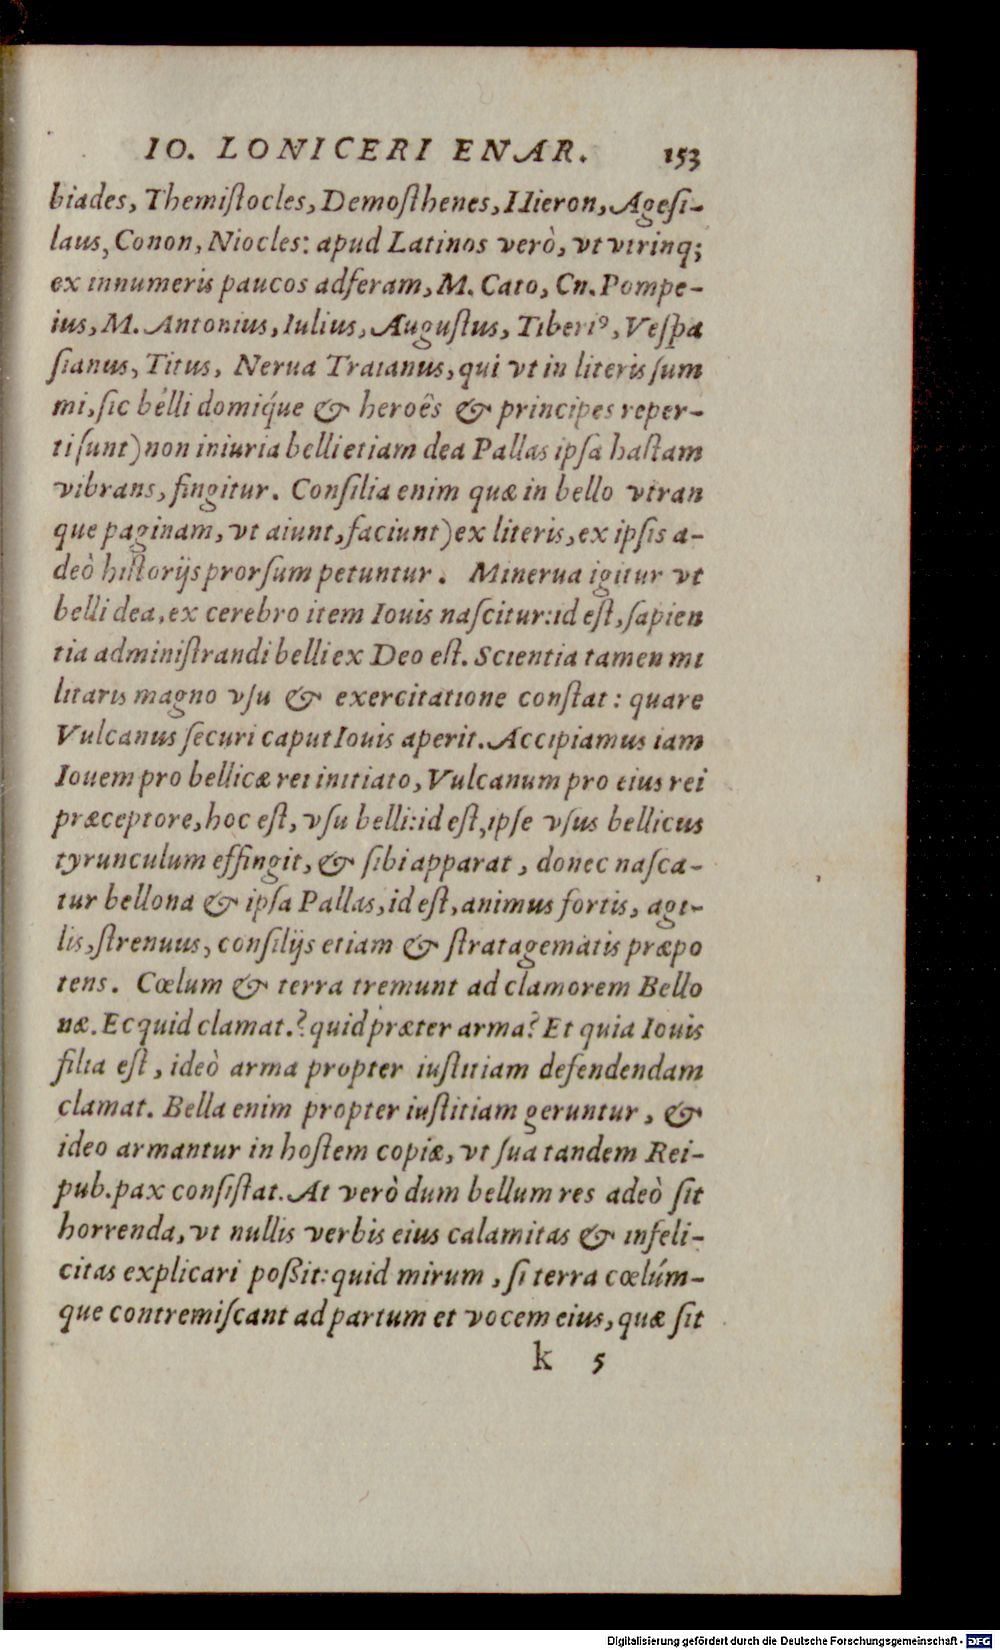 IO. LONICERI ENAR. 153
biades, Themiſtocles, Demoſthenes, Hieron, Ageſi-
laus, Conon, Niocles: apud Latinos verò, vt vtrinq;
ex innumeris paucos adferam, M. Cato, Cn. Pompe-
ius, M. Antonius, Iulius, Auguſtus, Tiberiꝰ, Veſpa
ſianus, Titus, Nerua Traianus, qui vt in literis ſum
mi, ſic belli domiq́ue & heroês & principes reper-
ti ſunt) non iniuria belli etiam dea Pallas ipſa haſtam
vibrans, fingitur. Conſilia enim quæ in bello vtran
que paginam, vt aiunt, faciunt) ex literis, ex ipſis a-
deò hiſtorijs prorſum petuntur. Minerua igitur vt
belli dea, ex cerebro item Iouis naſcitur: id eſt, ſapien
tia adminiſtrandi belli ex Deo eſt. Scientia tamen mi
litaris magno vſu & exercitatione conſtat: quare
Vulcanus ſecuri caput Iouis aperit. Accipiamus iam
Iouem pro bellicæ rei initiato, Vulcanum pro eius rei
præceptore, hoc eſt, vſu belli: id eſt, ipſe vſus bellicus
tyrunculum effingit, & ſibi apparat, donec naſca-
tur bellona & ipſa Pallas, id eſt, animus fortis, agi-
lis, ſtrenuus, conſilijs etiam & ſtratagematis præpo
tens. Cœlum & terra tremunt ad clamorem Bello
næ. Ecquid clamat.? quid præter arma? Et quia Iouis
filia eſt, ideò arma propter iuſtitiam defendendam
clamat. Bella enim propter iuſtitiam geruntur, &
ideo armantur in hoſtem copiæ, vt ſua tandem Rei-
pub. pax conſiſtat. At verò dum bellum res adeò ſit
horrenda, vt nullis verbis eius calamitas & infeli-
citas explicari poßit: quid mirum, ſi terra cœlúm-
que contremiſcant ad partum et vocem eius, quæ ſit
k 5
Digitalisierung gefördert durch die Deutsche Forschungsgemeinschaft - DFG